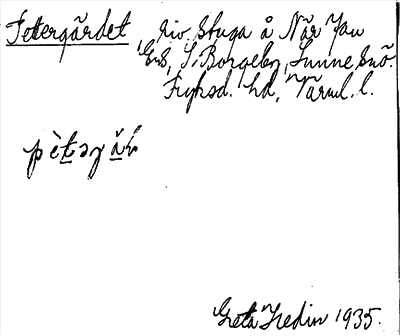 Petergärdet, riv. Stuga å När Jan
Ers, S. Borgeby, Sunne snö.
Fryksd. hd, Värml. l.
pètəɟä̀ɽ
Greta Hedin 1935.